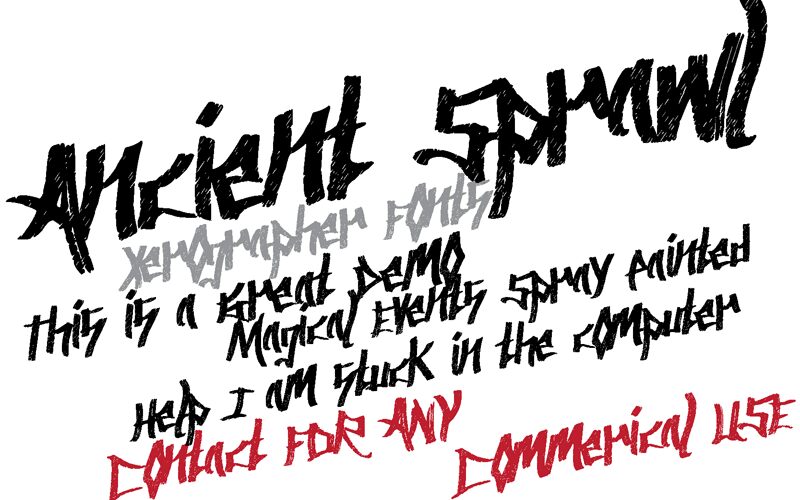 Ancient Sprawl
Xerographer Fonts
This is a Great Demo
Magical Events Spray Painted
Help I am Stuck in the Computer
Contact FOR ANY
Commerical USE